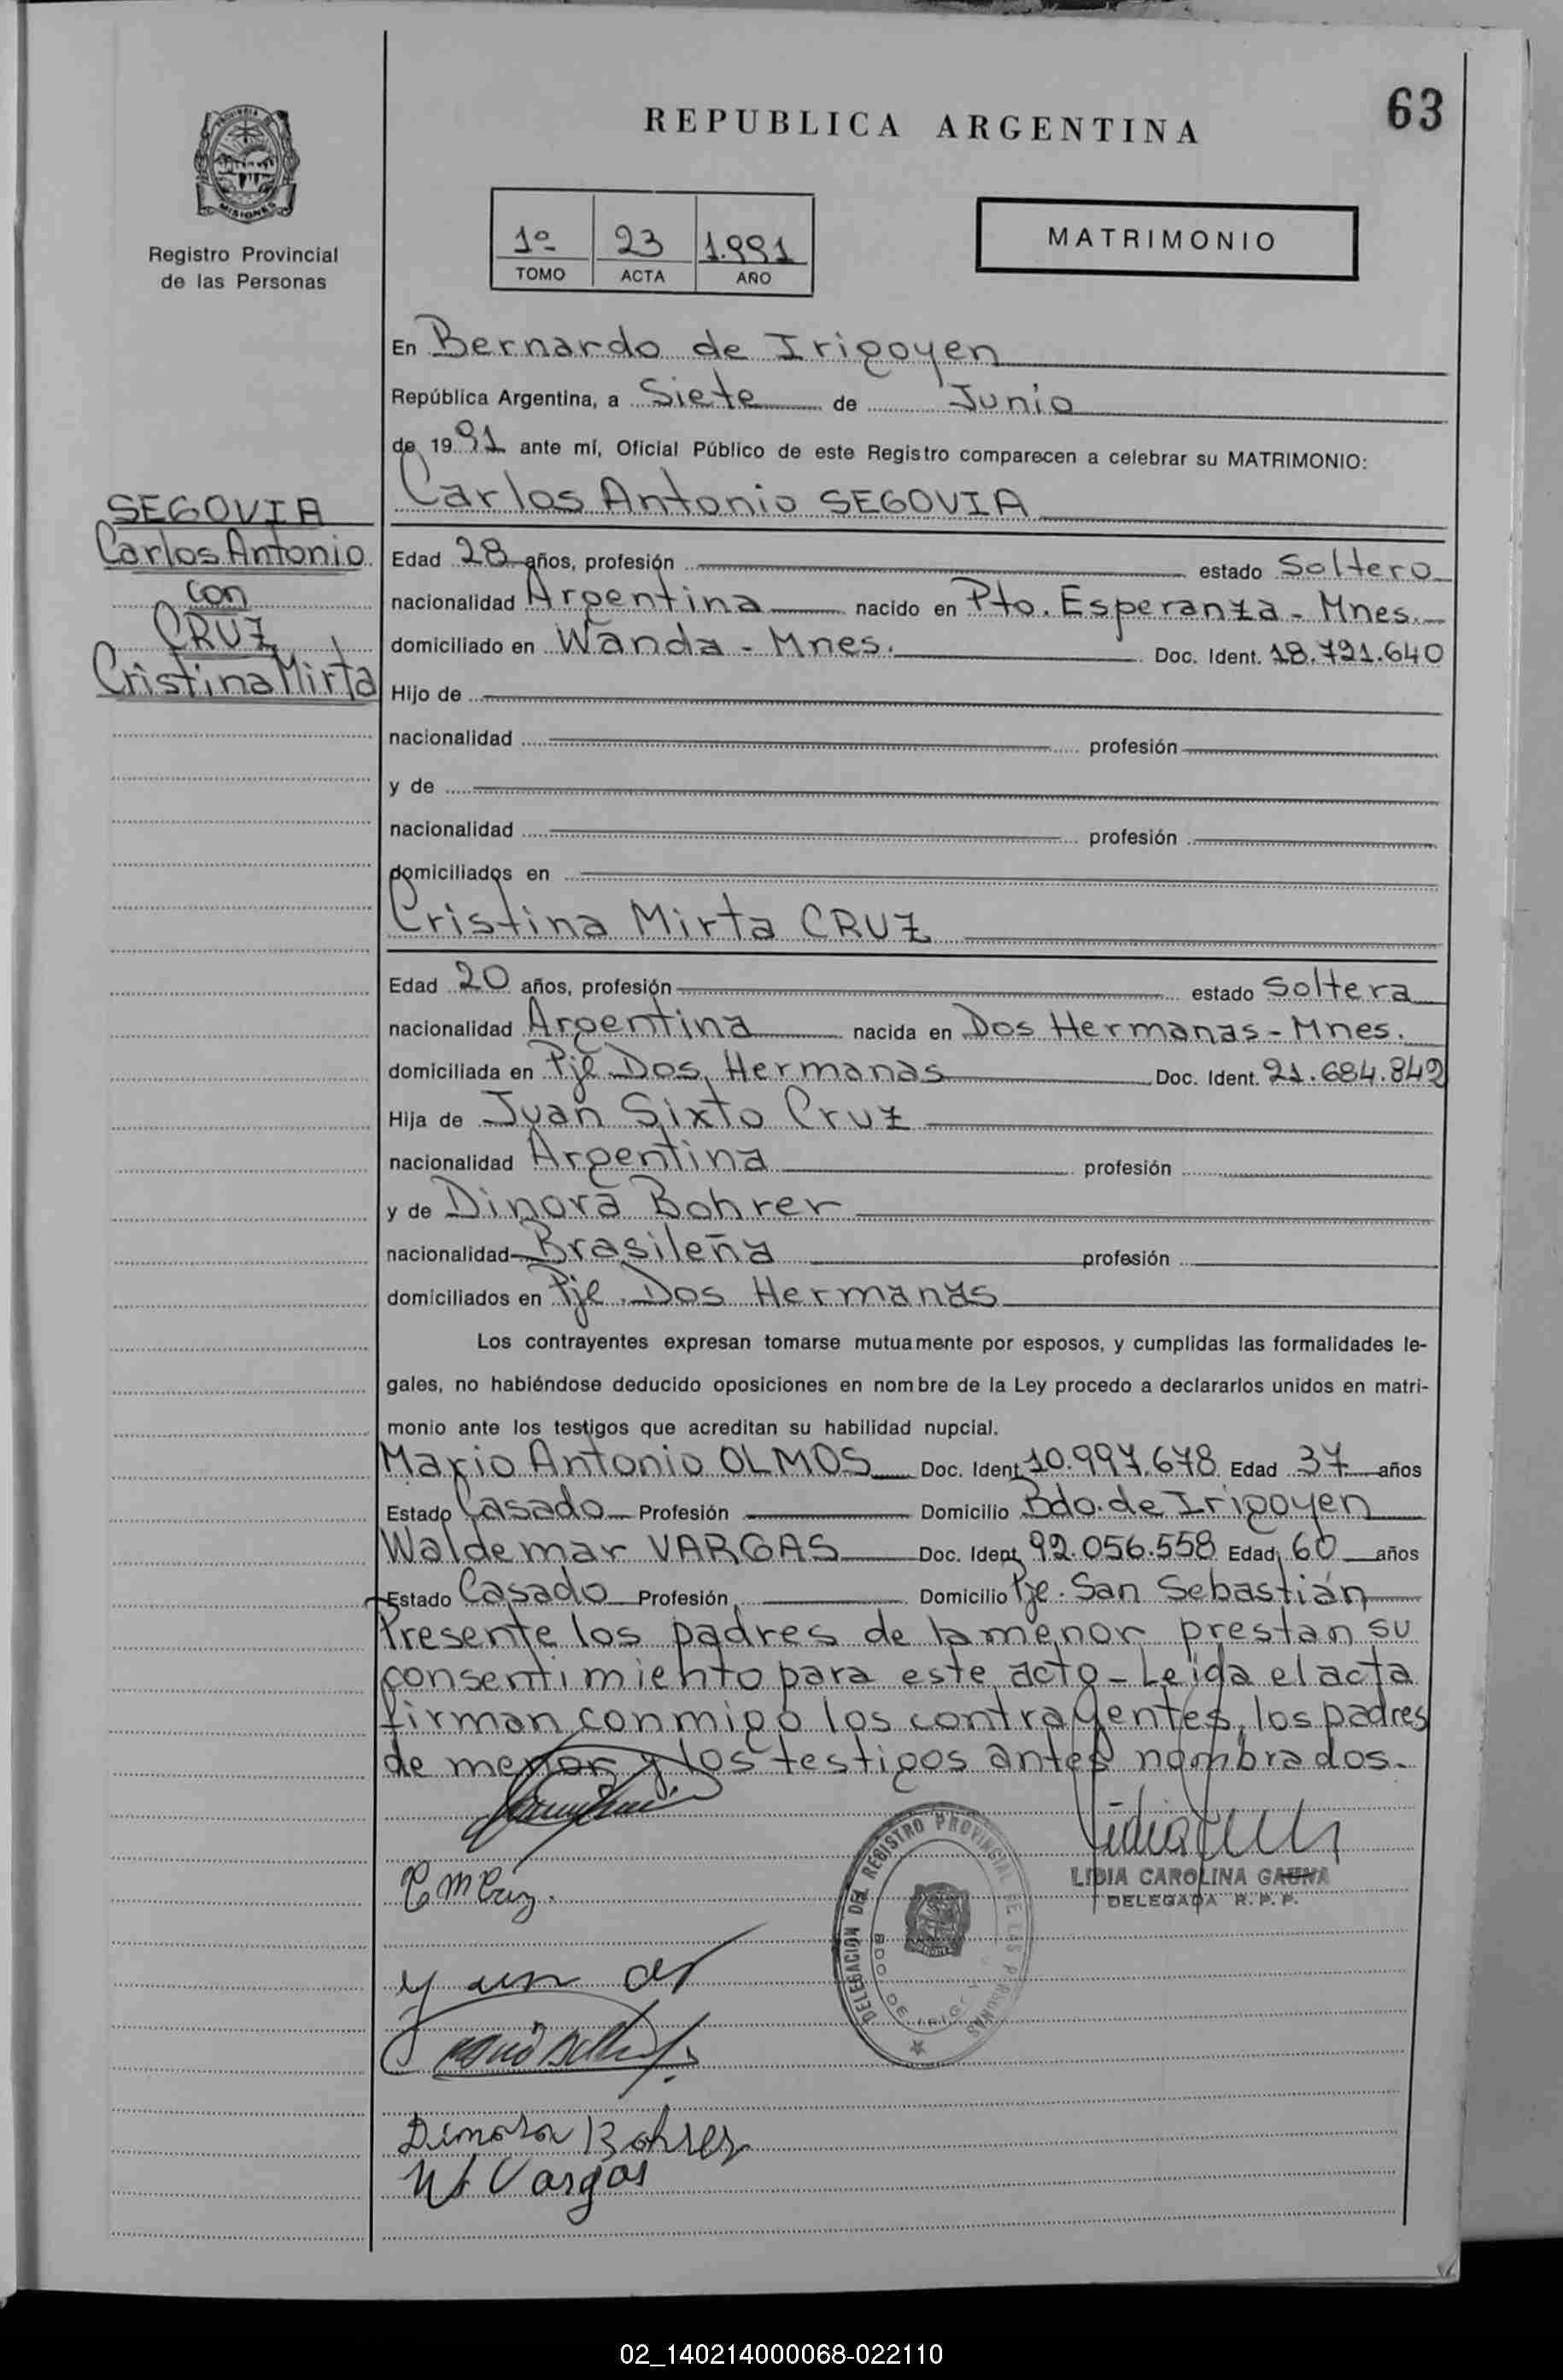 63
REPUBLICA ARGENTINA
PROVINCIA DE
MISIONES
Registro Provincial
de las Personas
1º 23 1.991
TOMO ACTA AÑO
MATRIMONIO
En Bernardo de Irigoyen
República Argentina, a Siete de Junio
de 1991 ante mí, Oficial Público de este Registro comparecen a celebrar su MATRIMONIO:
Carlos Antonio SEGOVIA
SEGOVIA
Carlos Antonio
con
CRUZ
Cristina Mirta
Edad 28 años, profesión estado Soltero
nacionalidad Argentina nacido en Pto. Esperanza - Mnes.
domiciliado en Wanda - Mnes. Doc. Ident. 18.721.640
Hijo de
nacionalidad profesión
y de
nacionalidad profesión
domiciliados en
Cristina Mirta CRUZ
Edad 20 años, profesión estado Soltera
nacionalidad Argentina nacida en Dos Hermanas - Mnes.
domiciliada en Pje Dos Hermanas Doc. Ident. 21.684.842
Hija de Juan Sixto Cruz
nacionalidad Argentina profesión
y de Dinora Bohrer
nacionalidad Brasileña profesión
domiciliados en Pje. Dos Hermanas
Los contrayentes expresan tomarse mutuamente por esposos, y cumplidas las formalidades le-
gales, no habiéndose deducido oposiciones en nombre de la Ley procedo a declararlos unidos en matri-
monio ante los testigos que acreditan su habilidad nupcial.
Mario Antonio OLMOS Doc. Ident 10.997.678 Edad 37 años
Estado Casado Profesión Domicilio Bdo. de Irigoyen
Waldemar VARGAS Doc. Ident 92.056.558 Edad 60 años
Estado Casado Profesión Domicilio Pje. San Sebastián
Presente los padres de la menor prestan su
consentimiento para este acto - Leida el acta
firman conmigo los contrayentes, los padres
de menor y los testigos antes nombrados.
C M Cruz.
LIDIA CAROLINA GAUNA
DELEGADA R. P. P.
DELEGACION DEL REGISTRO PROVINCIAL DE LAS PERSONAS
BDO. DE IRIGOYEN
Dinora Bohrer
W Vargas
02_140214000068-022110